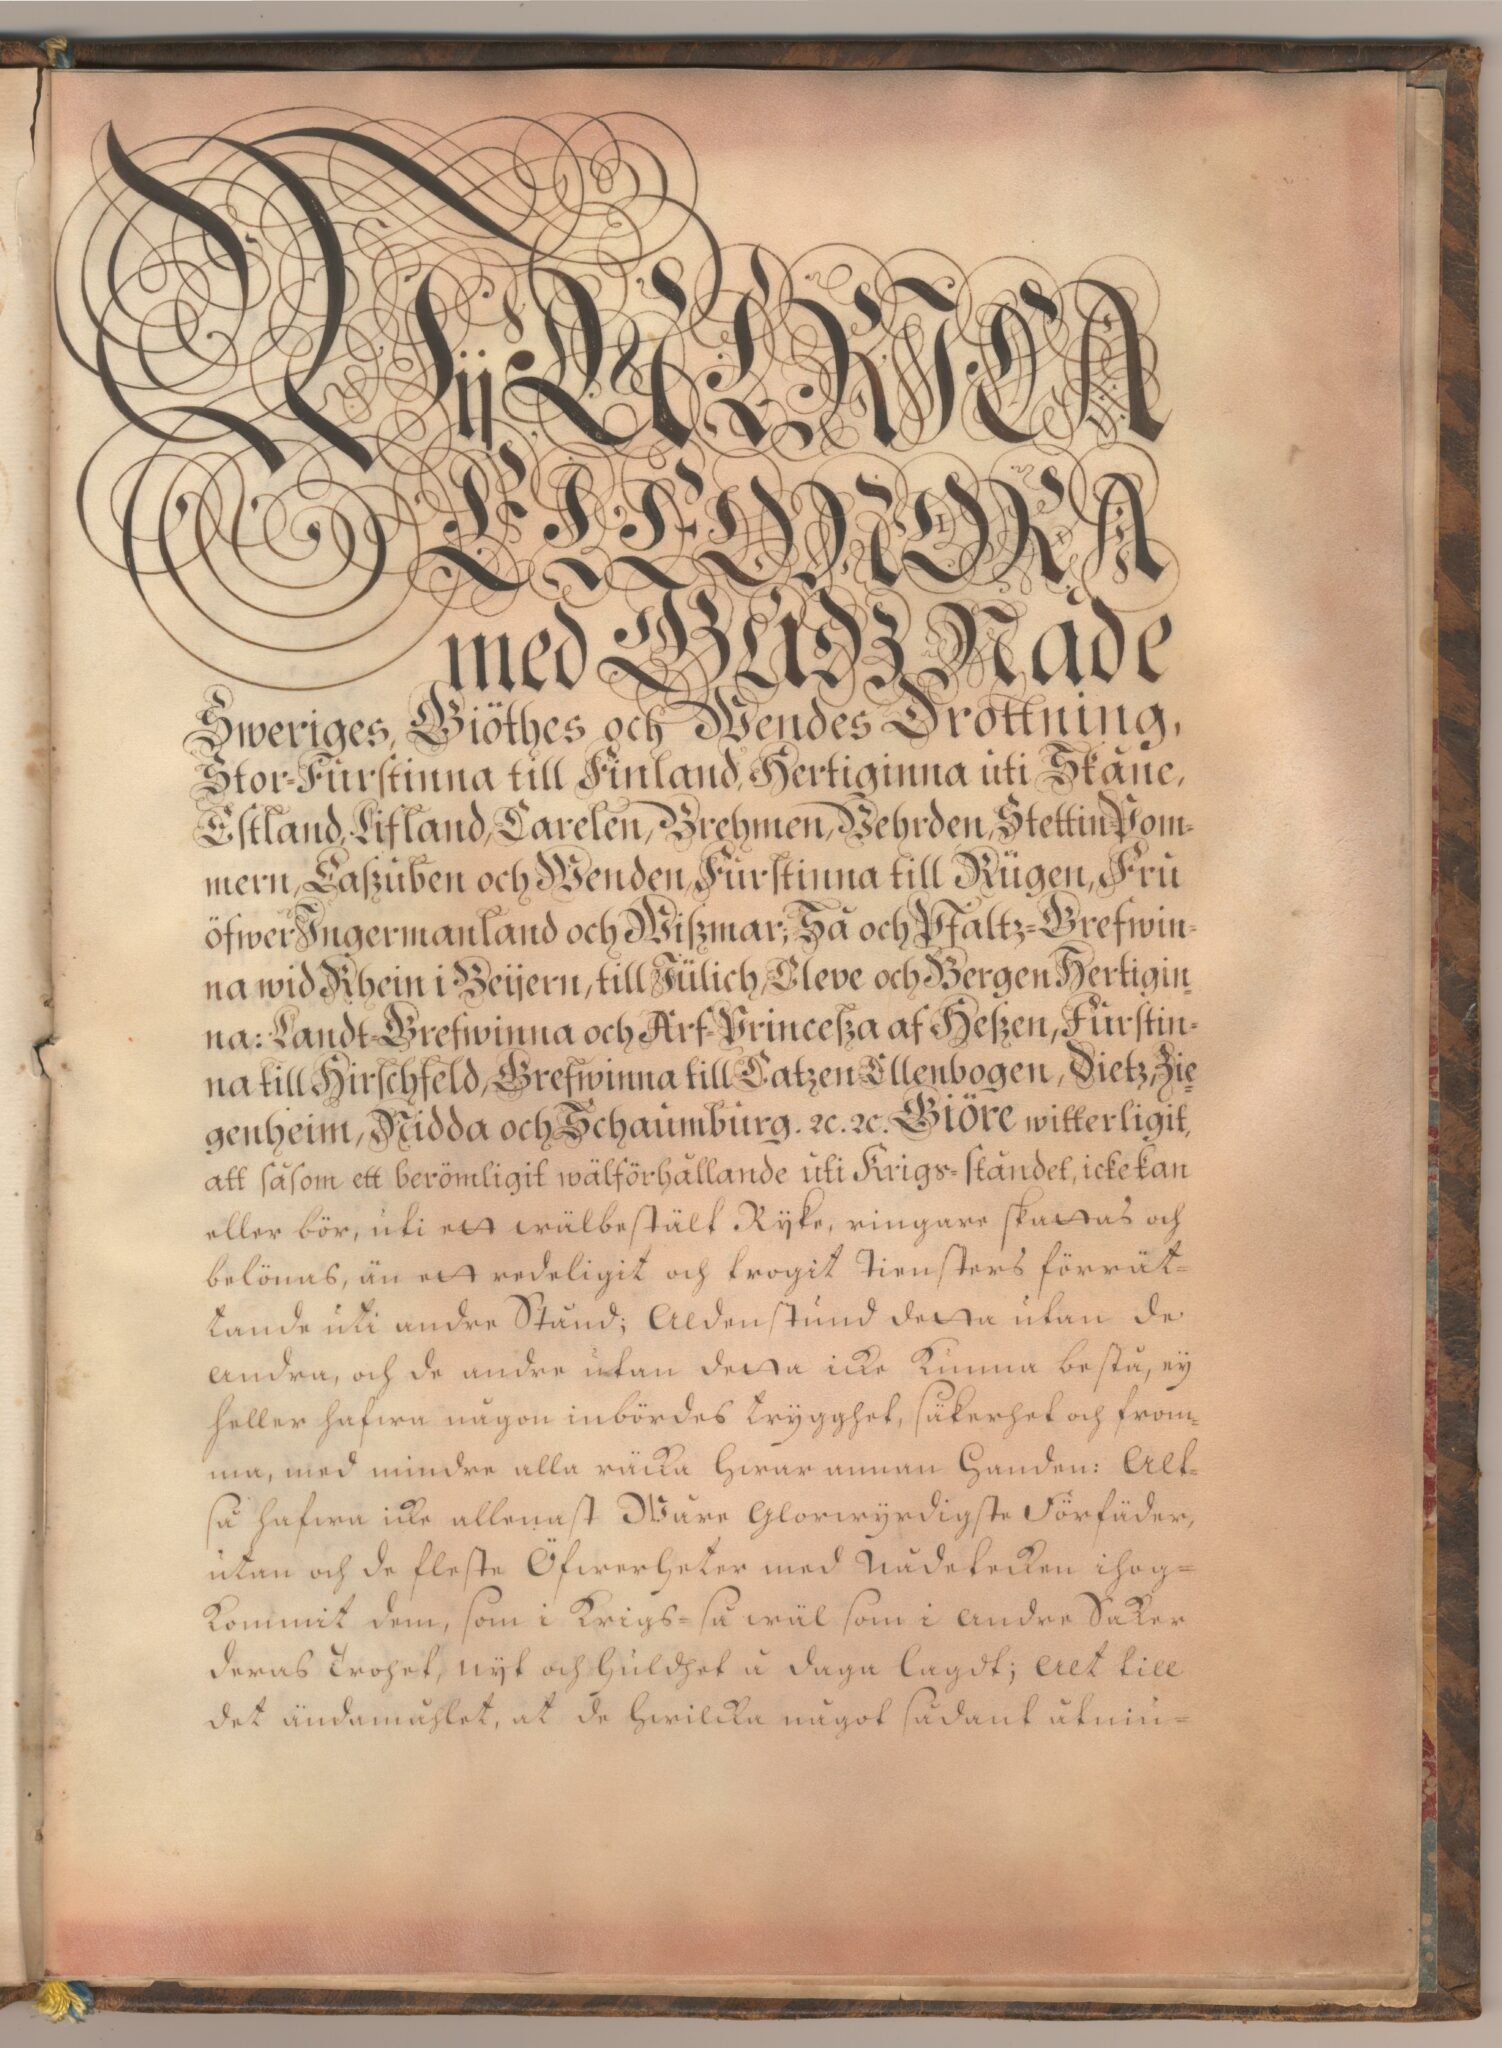 Wij ULRICA
ELEONORA
med GUDZ Nåde
Sweriges, Giöthes och Wendes Drottning,
Stor-Furstinna till Finland, Hertiginna uti Skåne,
Estland, Lifland, Carelen, Brehmen, Vehrden, Stettin Pom-
mern, Caßuben och Wenden, Furstinna till Rügen, Fru
öfwer Ingermanland och Wißmar; Så och Pfaltz-Grefwin-
na wid Rhein i Beijern, till Jülich, Cleve och Bergen Hertigin-
na: Landt-Grefwinna och Arf-Princeßa af Heßen, Furstin-
na till Hirschfeld, Grefwinna till Catzen Ellenbogen, Dietz, Zie-
genheim, Nidda och Schaumburg. ꝛc. ꝛc. Giöre witterligit,
att såsom ett berömligit wälförhållande uti Krigs-ståndet, icke kan
eller bör, uti ett wälbestält Ryke, ringare skattas och
belönas, än ett redeligit och trogit Tiensters förrät-
tande uti andre Stånd; Aldenstund detta utan de
andra, och de andre utan detta icke kunna bestå, ey
heller hafwa någon inbördes trygghet, säkerhet och from-
ma, med mindre alla räcka hwar annan Handen: Alt-
så hafwa icke allenast Wåre Glorwyrdigste Förfäder,
utan och de fleste Öfwerheter med Nådetecken ihog-
kommit dem, som i Krigs- så wäl som i andre Saker
deras Trohet, nyt och huldhet å daga lagdt; Alt till
det ändamåhlet, at de hwilcka något sådant åtniu-